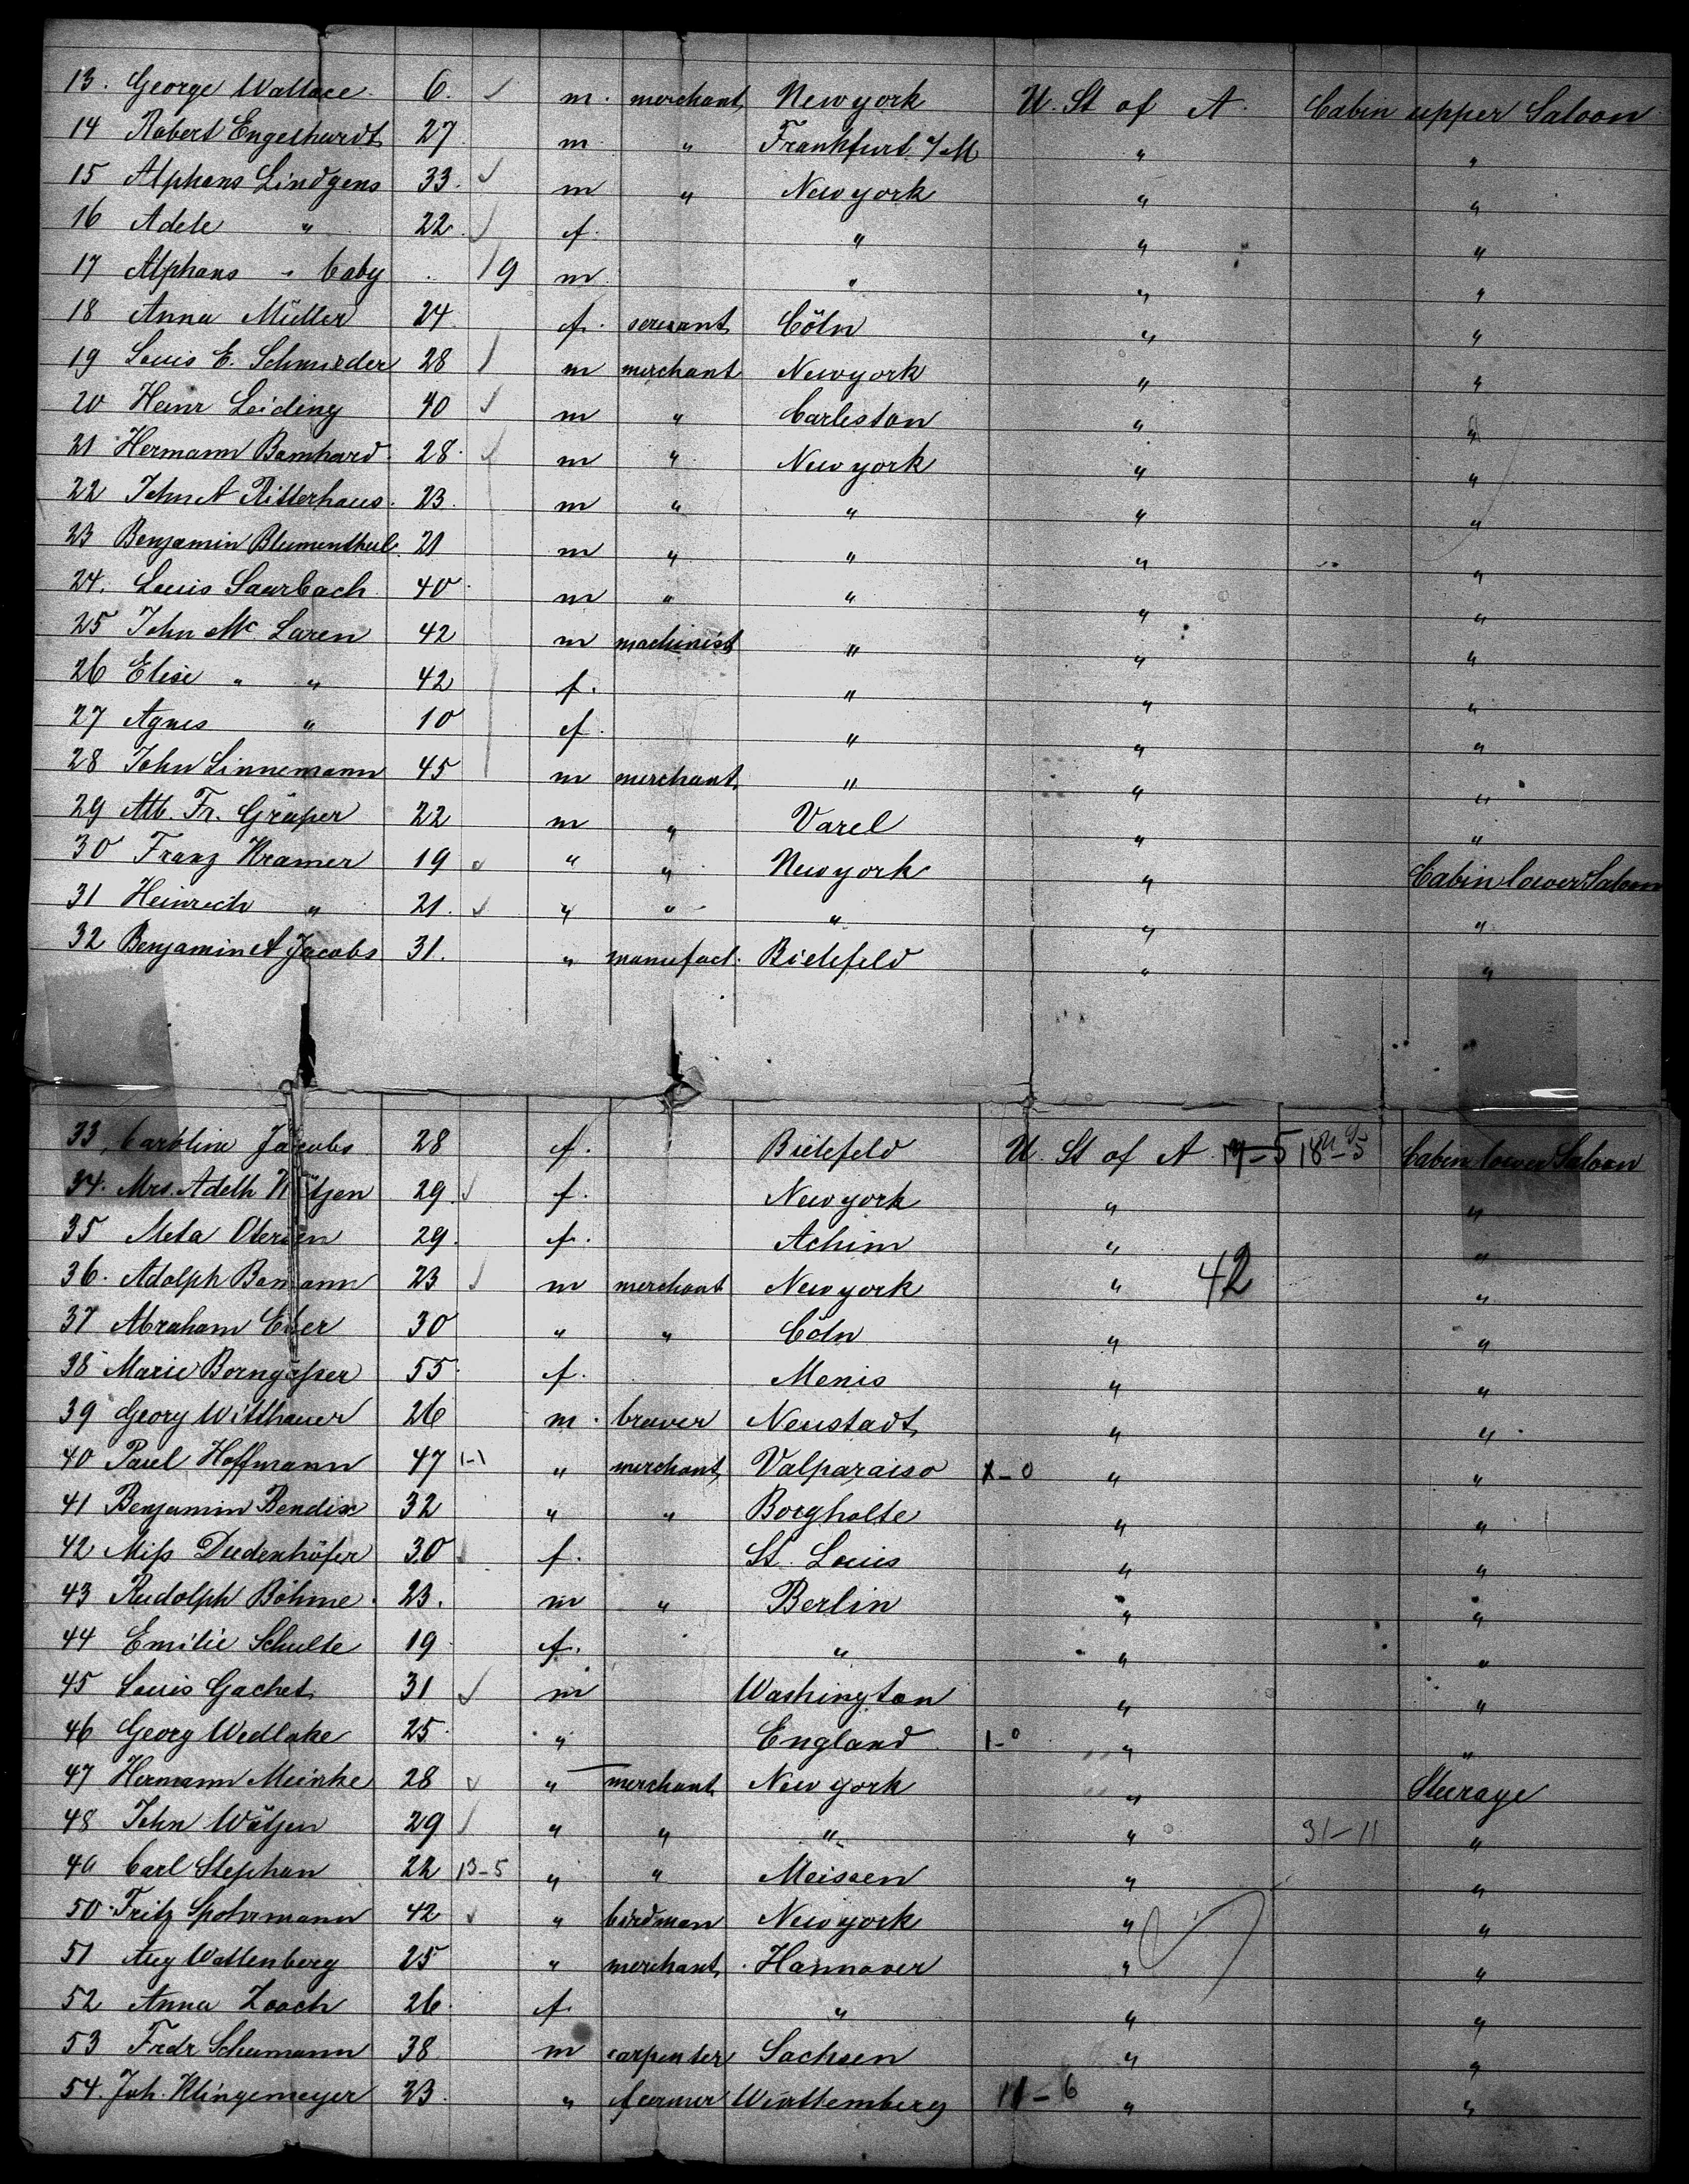 13. George Wallace. 6. ✓ m. merchant New york U. St of A. Cabin upper Saloon
14 Robert Engelhardt 27. m. " Frankfurt a/M " "
15 Alphons Lindgens 33. ✓ m " New york " "
16 Adele " 22. ✓ f. " " "
17 Alphons " baby . / 9 m " " "
18 Anna Müller 24 f. servant Cöln " "
19 Louis E. Schmieder 28 / m merchant New york " "
20 Heinr Leiding 40 ✓ m " Carleston " "
21 Hermann Bamhard. 28. ✓ m " New york " "
22 John A Ritterhaus. 23. m " " " "
23 Benjamin Blumenthal 21 m " " " "
24. Louis Saarbach 40. m " " " "
25 John Mc Laren 42 m machinist " " "
26 Elise " " 42 f. " " "
27 Agnes " 10 f. " " "
28 John Linnemann 45 m merchant " " "
29 Alb. Fr. Gräper 22 m " Varel " "
30 Franz Kramer 19 ✓ " " New york " Cabin lower Saloon
31 Heinrich " 21. ✓ " " " " "
32 Benjamin A Jacobs 31. " manufact. Bielefeld " "
33, Caroline Jacobs 28 f. Bielefeld U. St of A. Cabin lower Saloon
34. Mrs. Adelh Wätjen 29. ✓ f. New york " "
35 Meta Otersen 29. f. Achim " "
36. Adolph 23 ✓ m merchant New york " 42 "
37 Abraham 30 " " Cöln " "
38 Marie Borngässer 55. f. Menis " "
39 Georg Witthauer 26 m. brewer Neustadt " "
40 Paul Hoffmann 47 1-1 " merchant Valparaiso X-0 " "
41 Benjamin Bendix 32 " " Borgholte " "
42 Miss Dudenhöfer 30 f. St. Louis " "
43 Rudolph Böhme. 23. m " Berlin " "
44 Emilie Schulte 19. f. " " "
45 Louis Gachet 31 ✓ m Washington " "
46 Georg Wedlake 25. " England 1-0 " "
47 Hermann Meinke 28 ✓ " merchant New york " Steerage
48 John Wätjen 29 ✓ " " " " 31-11 "
49 Carl Stephan 22 13-5 " " Meissen " "
50. Fritz Spohrmann 42 ✓ " birdman New york " "
51 Aug Wallenberg 25 " merchant Hannover " "
52 Anna Zoach 26. f. " " "
53 Fredr Schumann 38 m carpenter Sachsen " "
54. Joh. Klingemeyer 23. " farmer Württemberg 11-6 " "